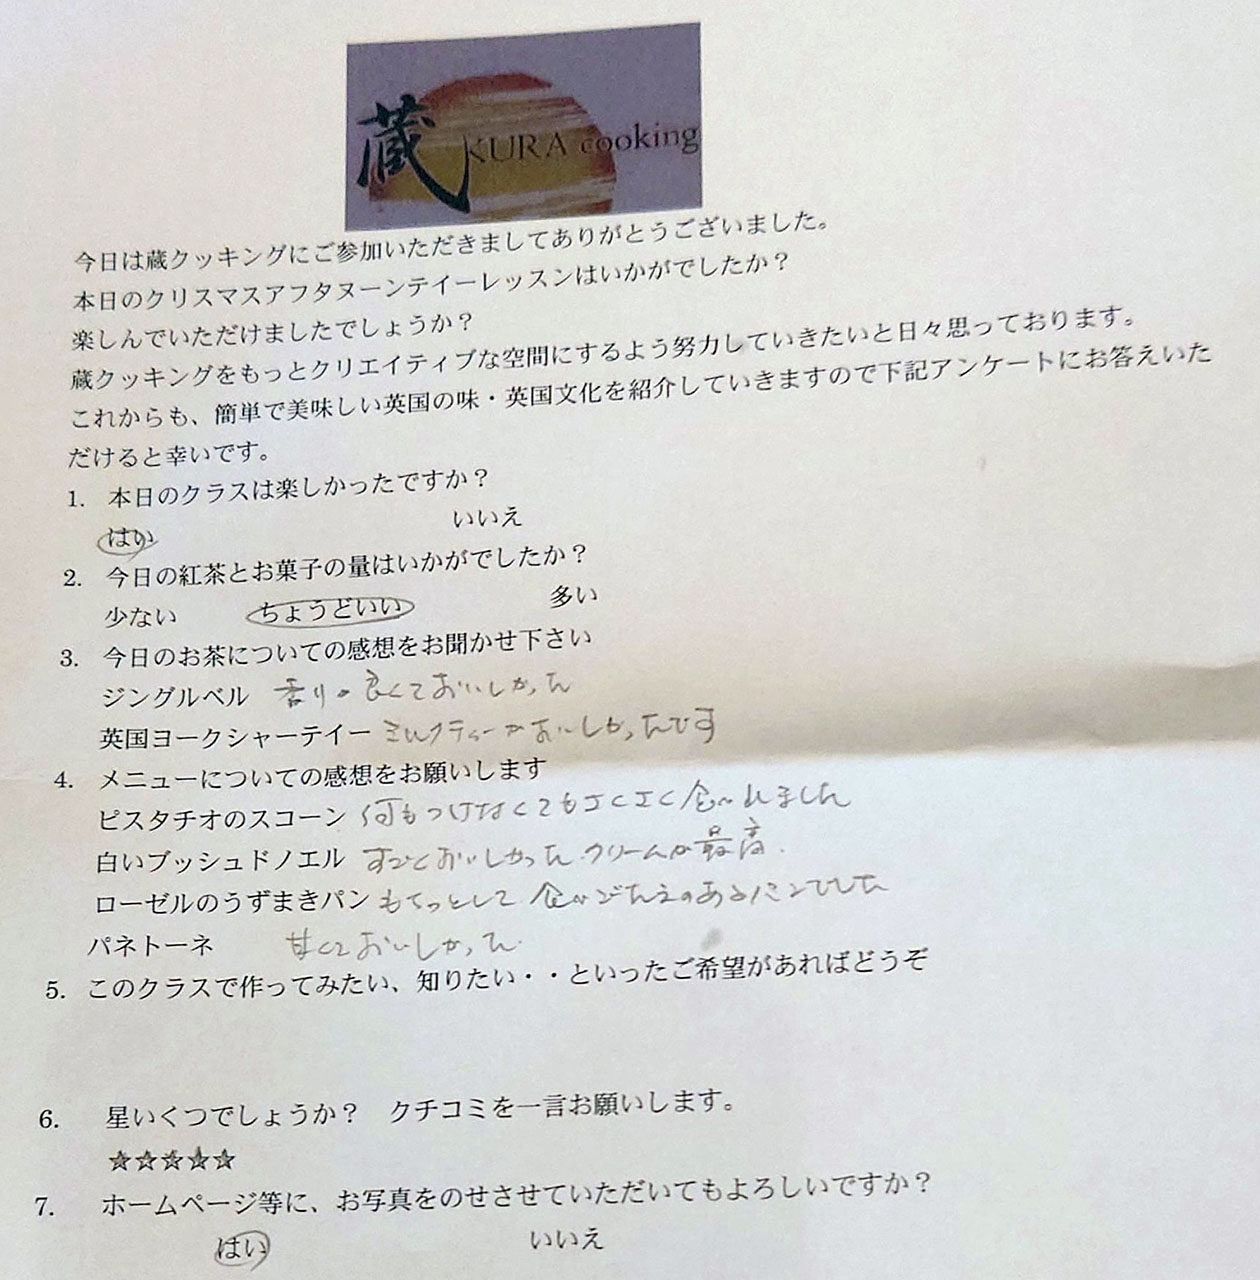 蔵 KURA cooking
今日は蔵クッキングにご参加いただきましてありがとうございました。
本日のクリスマスアフタヌーンテイーレッスンはいかがでしたか？
楽しんでいただけましたでしょうか？
蔵クッキングをもっとクリエイティブな空間にするよう努力していきたいと日々思っております。
これからも、簡単で美味しい英国の味・英国文化を紹介していきますので下記アンケートにお答えいた
だけると幸いです。
1. 本日のクラスは楽しかったですか？
はい いいえ
2. 今日の紅茶とお菓子の量はいかがでしたか？
少ない ちょうどいい 多い
3. 今日のお茶についての感想をお聞かせ下さい
ジングルベル 香りが良くておいしかった
英国ヨークシャーテイー ミルクティーがおいしかったです
4. メニューについての感想をお願いします
ピスタチオのスコーン 何もつけなくてもさくさく食べれました
白いブッシュドノエル すごくおいしかった クリームが最高.
ローゼルのうずまきパン もちっとして食べごたえのあるパンでした
パネトーネ 甘くておいしかった
5. このクラスで作ってみたい、知りたい・・といったご希望があればどうぞ
6. 星いくつでしょうか？ クチコミを一言お願いします。
☆☆☆☆☆
7. ホームページ等に、お写真をのせさせていただいてもよろしいですか？
はい いいえ